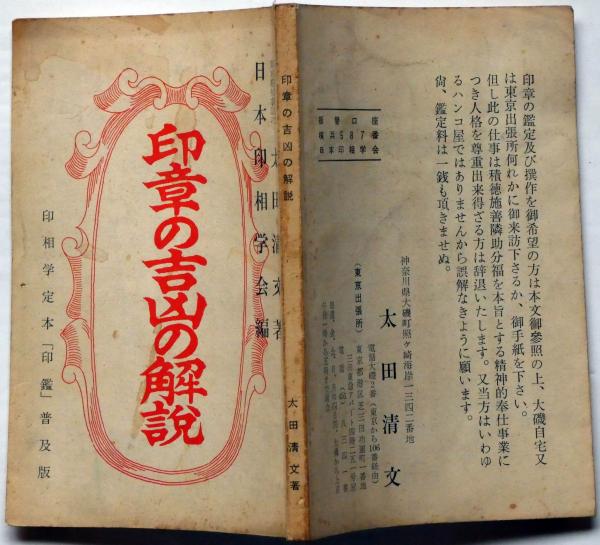 太田清文著
日本印相学会編
印章の吉凶の解説
印相学定本「印鑑」普及版
印章の吉凶の解説
太田清文著
印章の鑑定及び撰作を御希望の方は本文御參照の上、大磯自宅又
は東京出張所何れかに御来訪下さるか、御手紙を下さい。
但し此の仕事は積徳施善隣助分福を本旨とする精神的奉仕事業に
つき人格を尊重出来得ざる方は辞退いたします。又当方はいわゆ
るハンコ屋ではありませんから誤解なきように願います。
尙、鑑定料は一銭も頂きませぬ。
振替口座
横浜5887番
日本印相学会
神奈川県大磯町照ヶ崎海岸一三四二番地
太田清文
電話大磯2番(東京から106番経由)
(東京出張所)
東京都港区芝三田功運町一番地